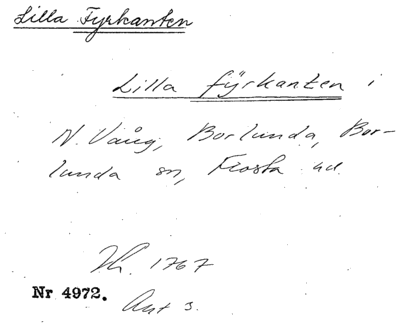 Lilla Fyrkanten
Lilla fÿrkanten i
N. Vång, Borlunda, Bor-
lunda sn, Frosta hd.
1767
Nr 4972.
Akt 3.